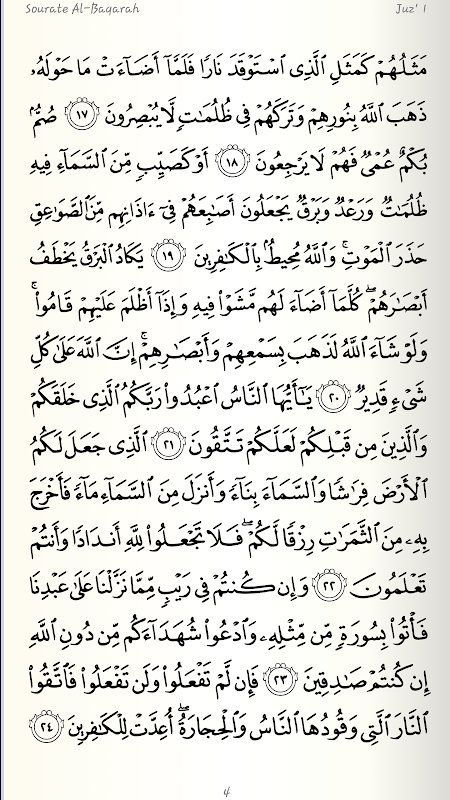 Sourate Al-Baqarah Juz' 1
مَثَلُهُمْ كَمَثَلِ ٱلَّذِى ٱسْتَوْقَدَ نَارًا فَلَمَّآ أَضَآءَتْ مَا حَوْلَهُۥ
ذَهَبَ ٱللَّهُ بِنُورِهِمْ وَتَرَكَهُمْ فِى ظُلُمَٰتٍ لَّا يُبْصِرُونَ ١٧ صُمٌّۢ
بُكْمٌ عُمْىٌ فَهُمْ لَا يَرْجِعُونَ ١٨ أَوْ كَصَيِّبٍ مِّنَ ٱلسَّمَآءِ فِيهِ
ظُلُمَٰتٌ وَرَعْدٌ وَبَرْقٌ يَجْعَلُونَ أَصَٰبِعَهُمْ فِىٓ ءَاذَانِهِم مِّنَ ٱلصَّوَٰعِقِ
حَذَرَ ٱلْمَوْتِ ۚ وَٱللَّهُ مُحِيطٌۢ بِٱلْكَٰفِرِينَ ١٩ يَكَادُ ٱلْبَرْقُ يَخْطَفُ
أَبْصَٰرَهُمْ ۖ كُلَّمَآ أَضَآءَ لَهُم مَّشَوْا۟ فِيهِ وَإِذَآ أَظْلَمَ عَلَيْهِمْ قَامُوا۟ ۚ
وَلَوْ شَآءَ ٱللَّهُ لَذَهَبَ بِسَمْعِهِمْ وَأَبْصَٰرِهِمْ ۚ إِنَّ ٱللَّهَ عَلَىٰ كُلِّ
شَىْءٍ قَدِيرٌ ٢٠ يَٰٓأَيُّهَا ٱلنَّاسُ ٱعْبُدُوا۟ رَبَّكُمُ ٱلَّذِى خَلَقَكُمْ
وَٱلَّذِينَ مِن قَبْلِكُمْ لَعَلَّكُمْ تَتَّقُونَ ٢١ ٱلَّذِى جَعَلَ لَكُمُ
ٱلْأَرْضَ فِرَٰشًا وَٱلسَّمَآءَ بِنَآءً وَأَنزَلَ مِنَ ٱلسَّمَآءِ مَآءً فَأَخْرَجَ
بِهِۦ مِنَ ٱلثَّمَرَٰتِ رِزْقًا لَّكُمْ ۖ فَلَا تَجْعَلُوا۟ لِلَّهِ أَندَادًا وَأَنتُمْ
تَعْلَمُونَ ٢٢ وَإِن كُنتُمْ فِى رَيْبٍ مِّمَّا نَزَّلْنَا عَلَىٰ عَبْدِنَا
فَأْتُوا۟ بِسُورَةٍ مِّن مِّثْلِهِۦ وَٱدْعُوا۟ شُهَدَآءَكُم مِّن دُونِ ٱللَّهِ
إِن كُنتُمْ صَٰدِقِينَ ٢٣ فَإِن لَّمْ تَفْعَلُوا۟ وَلَن تَفْعَلُوا۟ فَٱتَّقُوا۟
ٱلنَّارَ ٱلَّتِى وَقُودُهَا ٱلنَّاسُ وَٱلْحِجَارَةُ ۖ أُعِدَّتْ لِلْكَٰفِرِينَ ٢٤
4